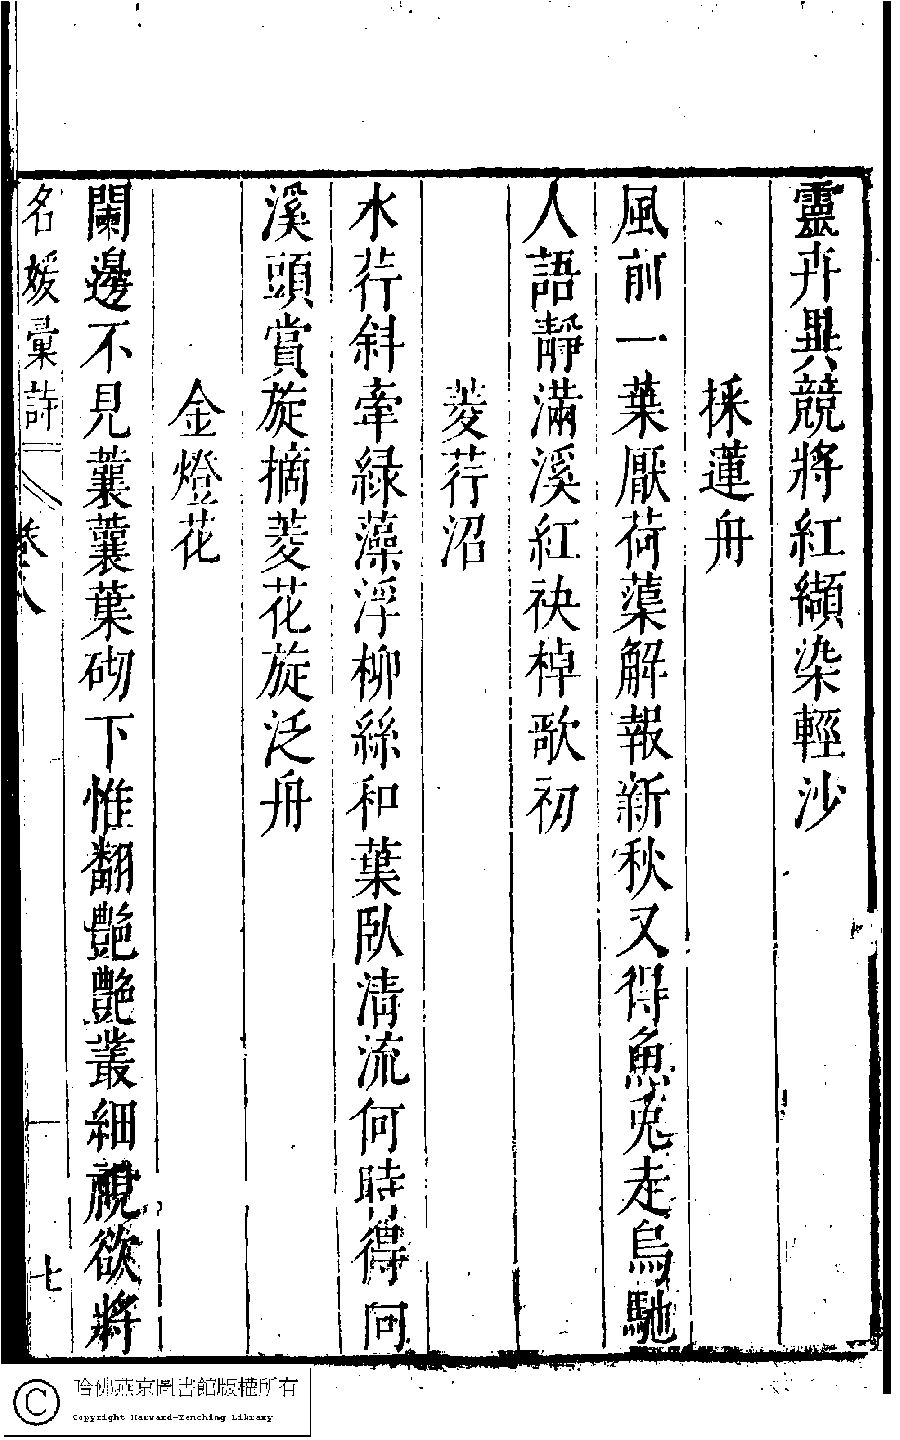 靈卉異競將紅纈染輕沙
採蓮舟
風前一葉厭荷蕖解報新秋又得魚兎走烏馳
人語靜滿溪紅袂棹歌初
菱荇沼
水荇斜牽緑藻浮柳絲和葉臥清流何時得向
溪頭賞旋摘菱花旋泛舟
金燈花
闌邊不見蘘蘘葉砌下惟翻艷艷叢細視欲將
名媛彙詩
卷八
七
哈佛燕京圖書館版權所有
Copyright Harvard-Yenching Library